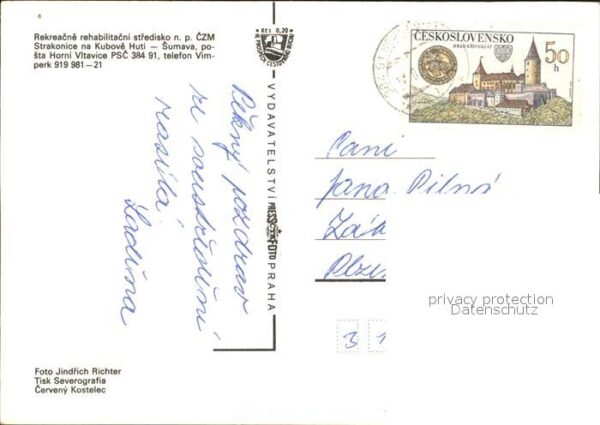 Rekreačně rehabilitační středisko n. p. ČZM
Strakonice na Kubově Huti — Šumava, po-
šta Horní Vltavice PSČ 384 91, telefon Vim-
perk 919 981—21
Kčs 0,20
ČESKOSLOVENSKO
HRAD KŘIVOKLÁT
50
h
Pěkný pozdrav
ze soustředění
zasílá
Laďina
VYDAVATELSTVÍ PRESSFOTO PRAHA
Paní
Jana Pilná
Plzeň
3 1
privacy protection
Datenschutz
Foto Jindřich Richter
Tisk Severografia
Červený Kostelec